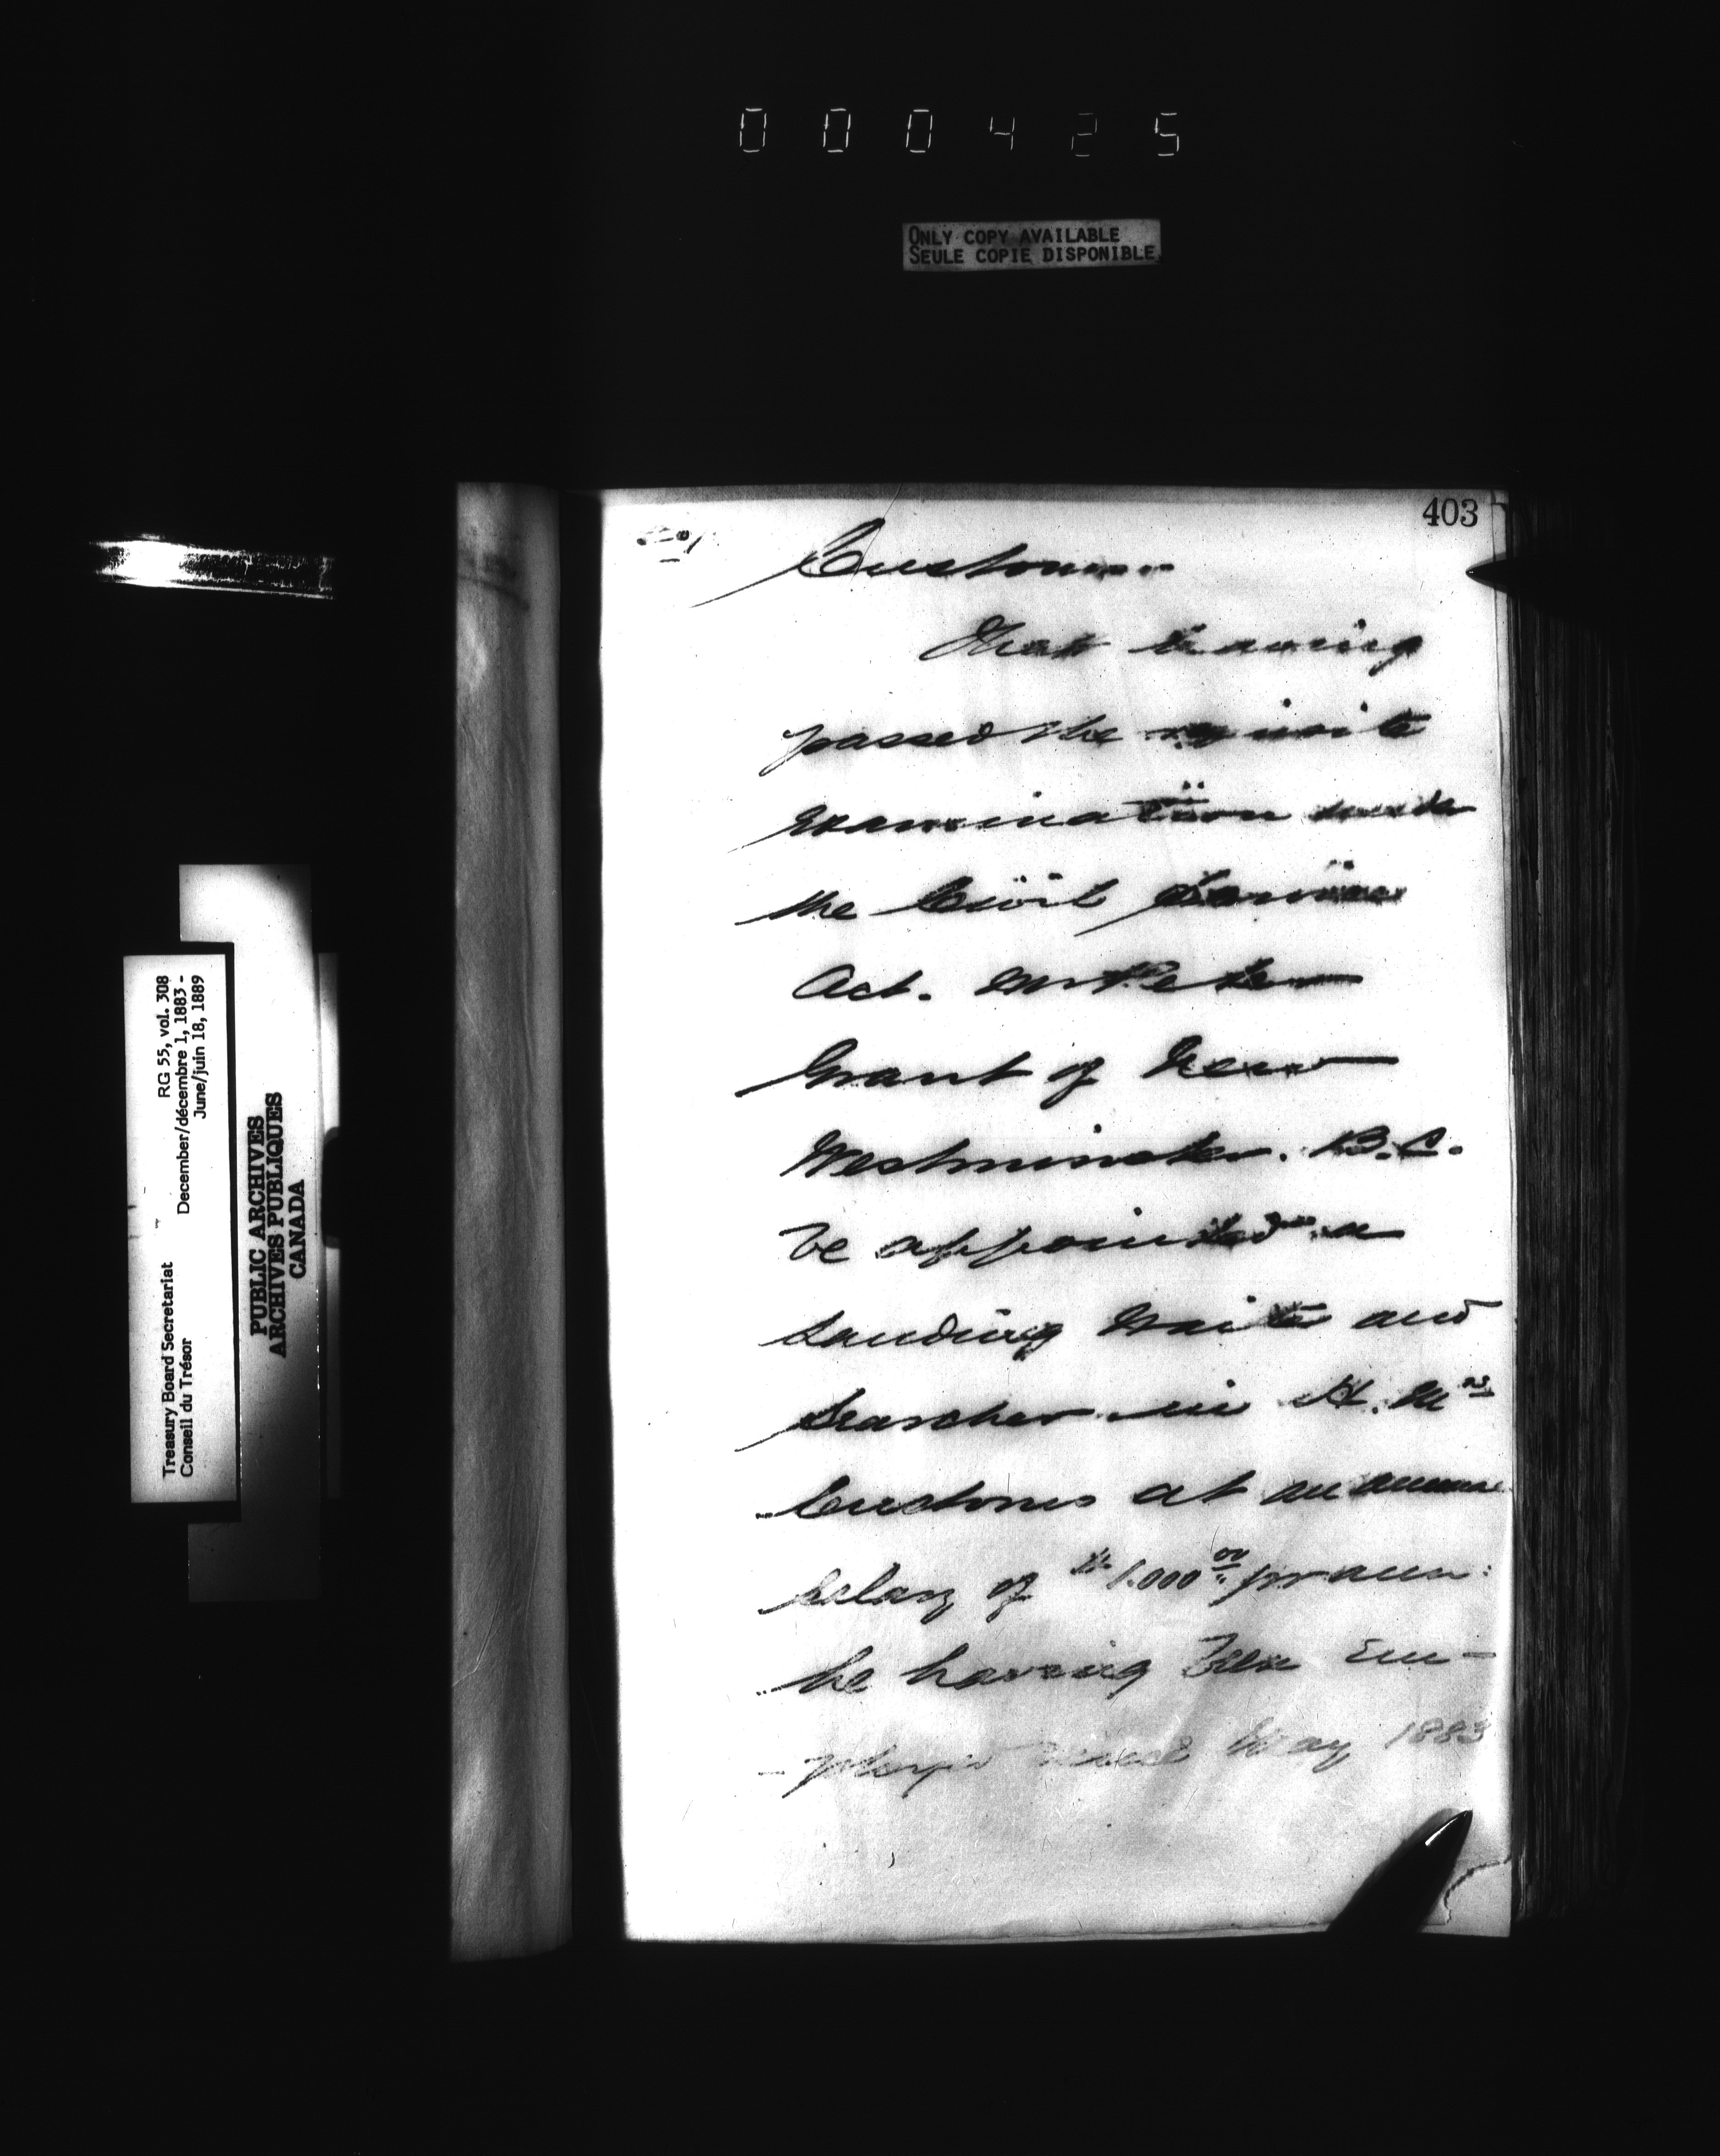 000425
ONLY COPY AVAILABLE
SEULE COPIE DISPONIBLE
403
Customs
That having
passed the requisite
examination under
the Civil Service
Act. Mr Peter
Grant of New
Westminster. B.C.
be appointed a
Landing Waiter and
Searcher in H. Ms
Customs at an annual
salary of $1.000 00 pr ann:
he having been em-
-ployed since May 1883
Treasury Board Secretariat RG 55, vol. 308
Conseil du Trésor December/décembre 1, 1883 -
June/juin 18, 1889
PUBLIC ARCHIVES
ARCHIVES PUBLIQUES
CANADA